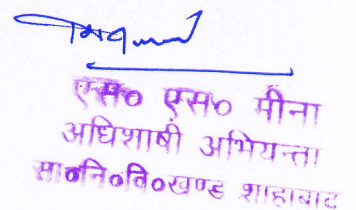 एस० एस० मीना
अधिशाषी अभियन्ता
सा०नि०वि०खण्ड शाहाबाद